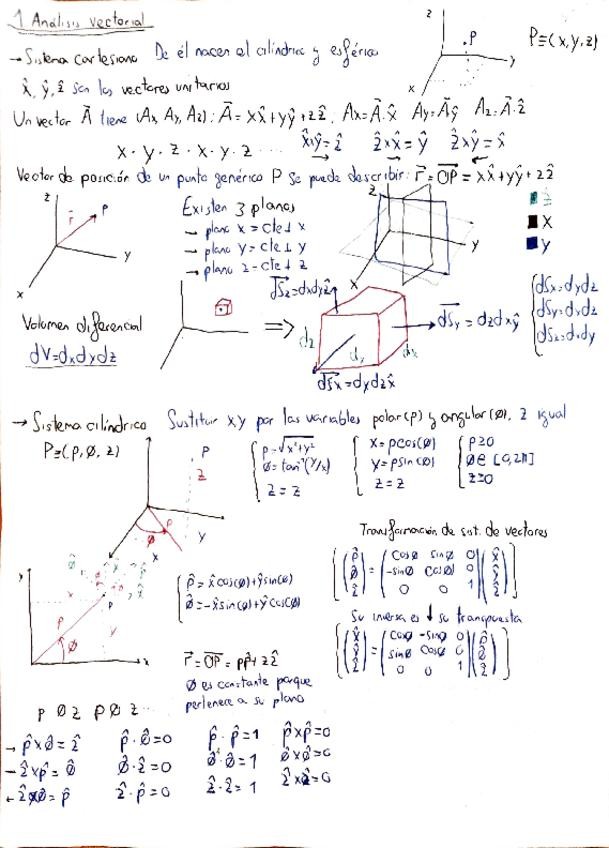 1 Análisis vectorial
→ Sistema cartesiano De él nacen el cilíndrico y esférico
P≡(x,y,z)
z
P
y
x
x̂, ŷ, ẑ son los vectores unitarios
Un vector A⃗ tiene (Ax, Ay, Az): A⃗ = xx̂+yŷ+zẑ, Ax=A⃗·x̂ Ay=A⃗ŷ Az=A⃗·ẑ
x·y·z·x·y·z··· x̂xŷ=ẑ ẑxx̂=ŷ ẑxŷ=x̂
Vector de posición de un punto genérico P se puede describir: r⃗=OP⃗=xx̂+yŷ+zẑ
z
r⃗
P
y
x
Existen 3 planos
→ plano x=cte⊥x
→ plano y=cte⊥y
→ plano z=cte⊥z
z
y
x
z
x
y
Volumen diferencial
dV=dxdydz
⇒
dSz⃗=dxdyẑ
dSy⃗=dzdxŷ
dSx⃗=dydzx̂
dz
dy
dx
dSx=dydz
dSy=dxdz
dSz=dxdy
→ Sistema cilíndrico Sustituir x,y por las variables polar(ρ) y angular(Ø), z igual
P≡(ρ,Ø,z)
P
z
ρ
Ø
x
y
ρ=√x²+y²
Ø=tan⁻¹(y/x)
z=z
x=ρcos(Ø)
y=ρsin(Ø)
z=z
ρ≥0
Ø∈[0,2π]
z≥0
Transformación de sist. de vectores
ρ̂ cosØ sinØ 0 x̂
Ø̂ = -sinØ cosØ 0 ŷ
ẑ 0 0 1 ẑ
y
x
P
ρ
y
Ø
x
ρ̂=x̂cos(Ø)+ŷsin(Ø)
Ø̂=-x̂sin(Ø)+ŷcos(Ø)
Su inversa es ↓ su transpuesta
x̂ cosØ -sinØ 0 ρ̂
ŷ = sinØ cosØ 0 Ø̂
ẑ 0 0 1 ẑ
r⃗=OP⃗=ρρ̂+zẑ
Ø es constante porque
pertenece a su plano
ρ Ø z ρ Ø z···
→ ρ̂xØ̂=ẑ ρ̂·Ø̂=0 ρ̂·ρ̂=1 ρ̂xρ̂=0
→ ẑxρ̂=Ø̂ Ø̂·ẑ=0 Ø̂·Ø̂=1 Ø̂xØ̂=0
← ẑxØ̂=ρ̂ ẑ·ρ̂=0 ẑ·ẑ=1 ẑxẑ=0